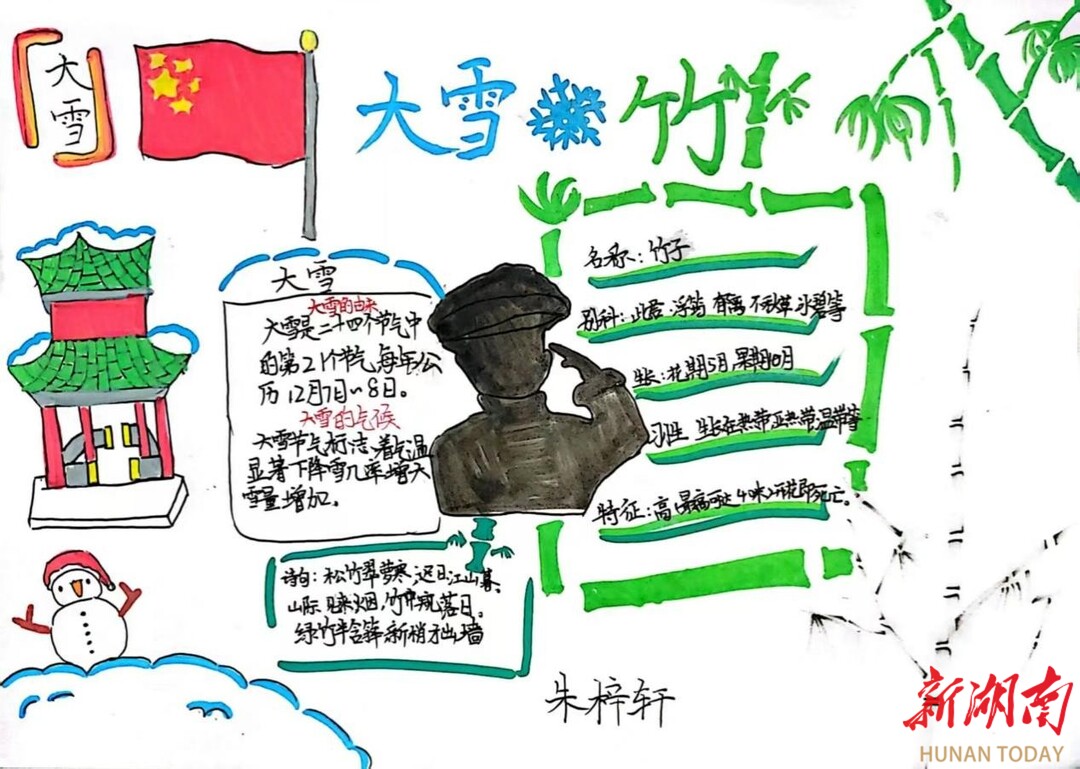 大雪
大雪 竹
大雪
大雪的由来
大雪是二十四个节气中
的第21个节气,每年公
历12月7日~8日。
大雪的气候
大雪节气标志着气温
显著下降雪几率增大
雪量增加。
名称:竹子
别科:此君 浮筠 不秋草 冰碧等
生长:花期5月,果期10月
习性 生长在热带亚热带温带等
特征:高 最高可达40米,开花即死亡。
诗句:松竹翠萝寒,迟日江山暮。
山际见来烟,竹中窥落日。
绿竹半含箨 新梢才出墙
朱梓轩
新湖南
HUNAN TODAY